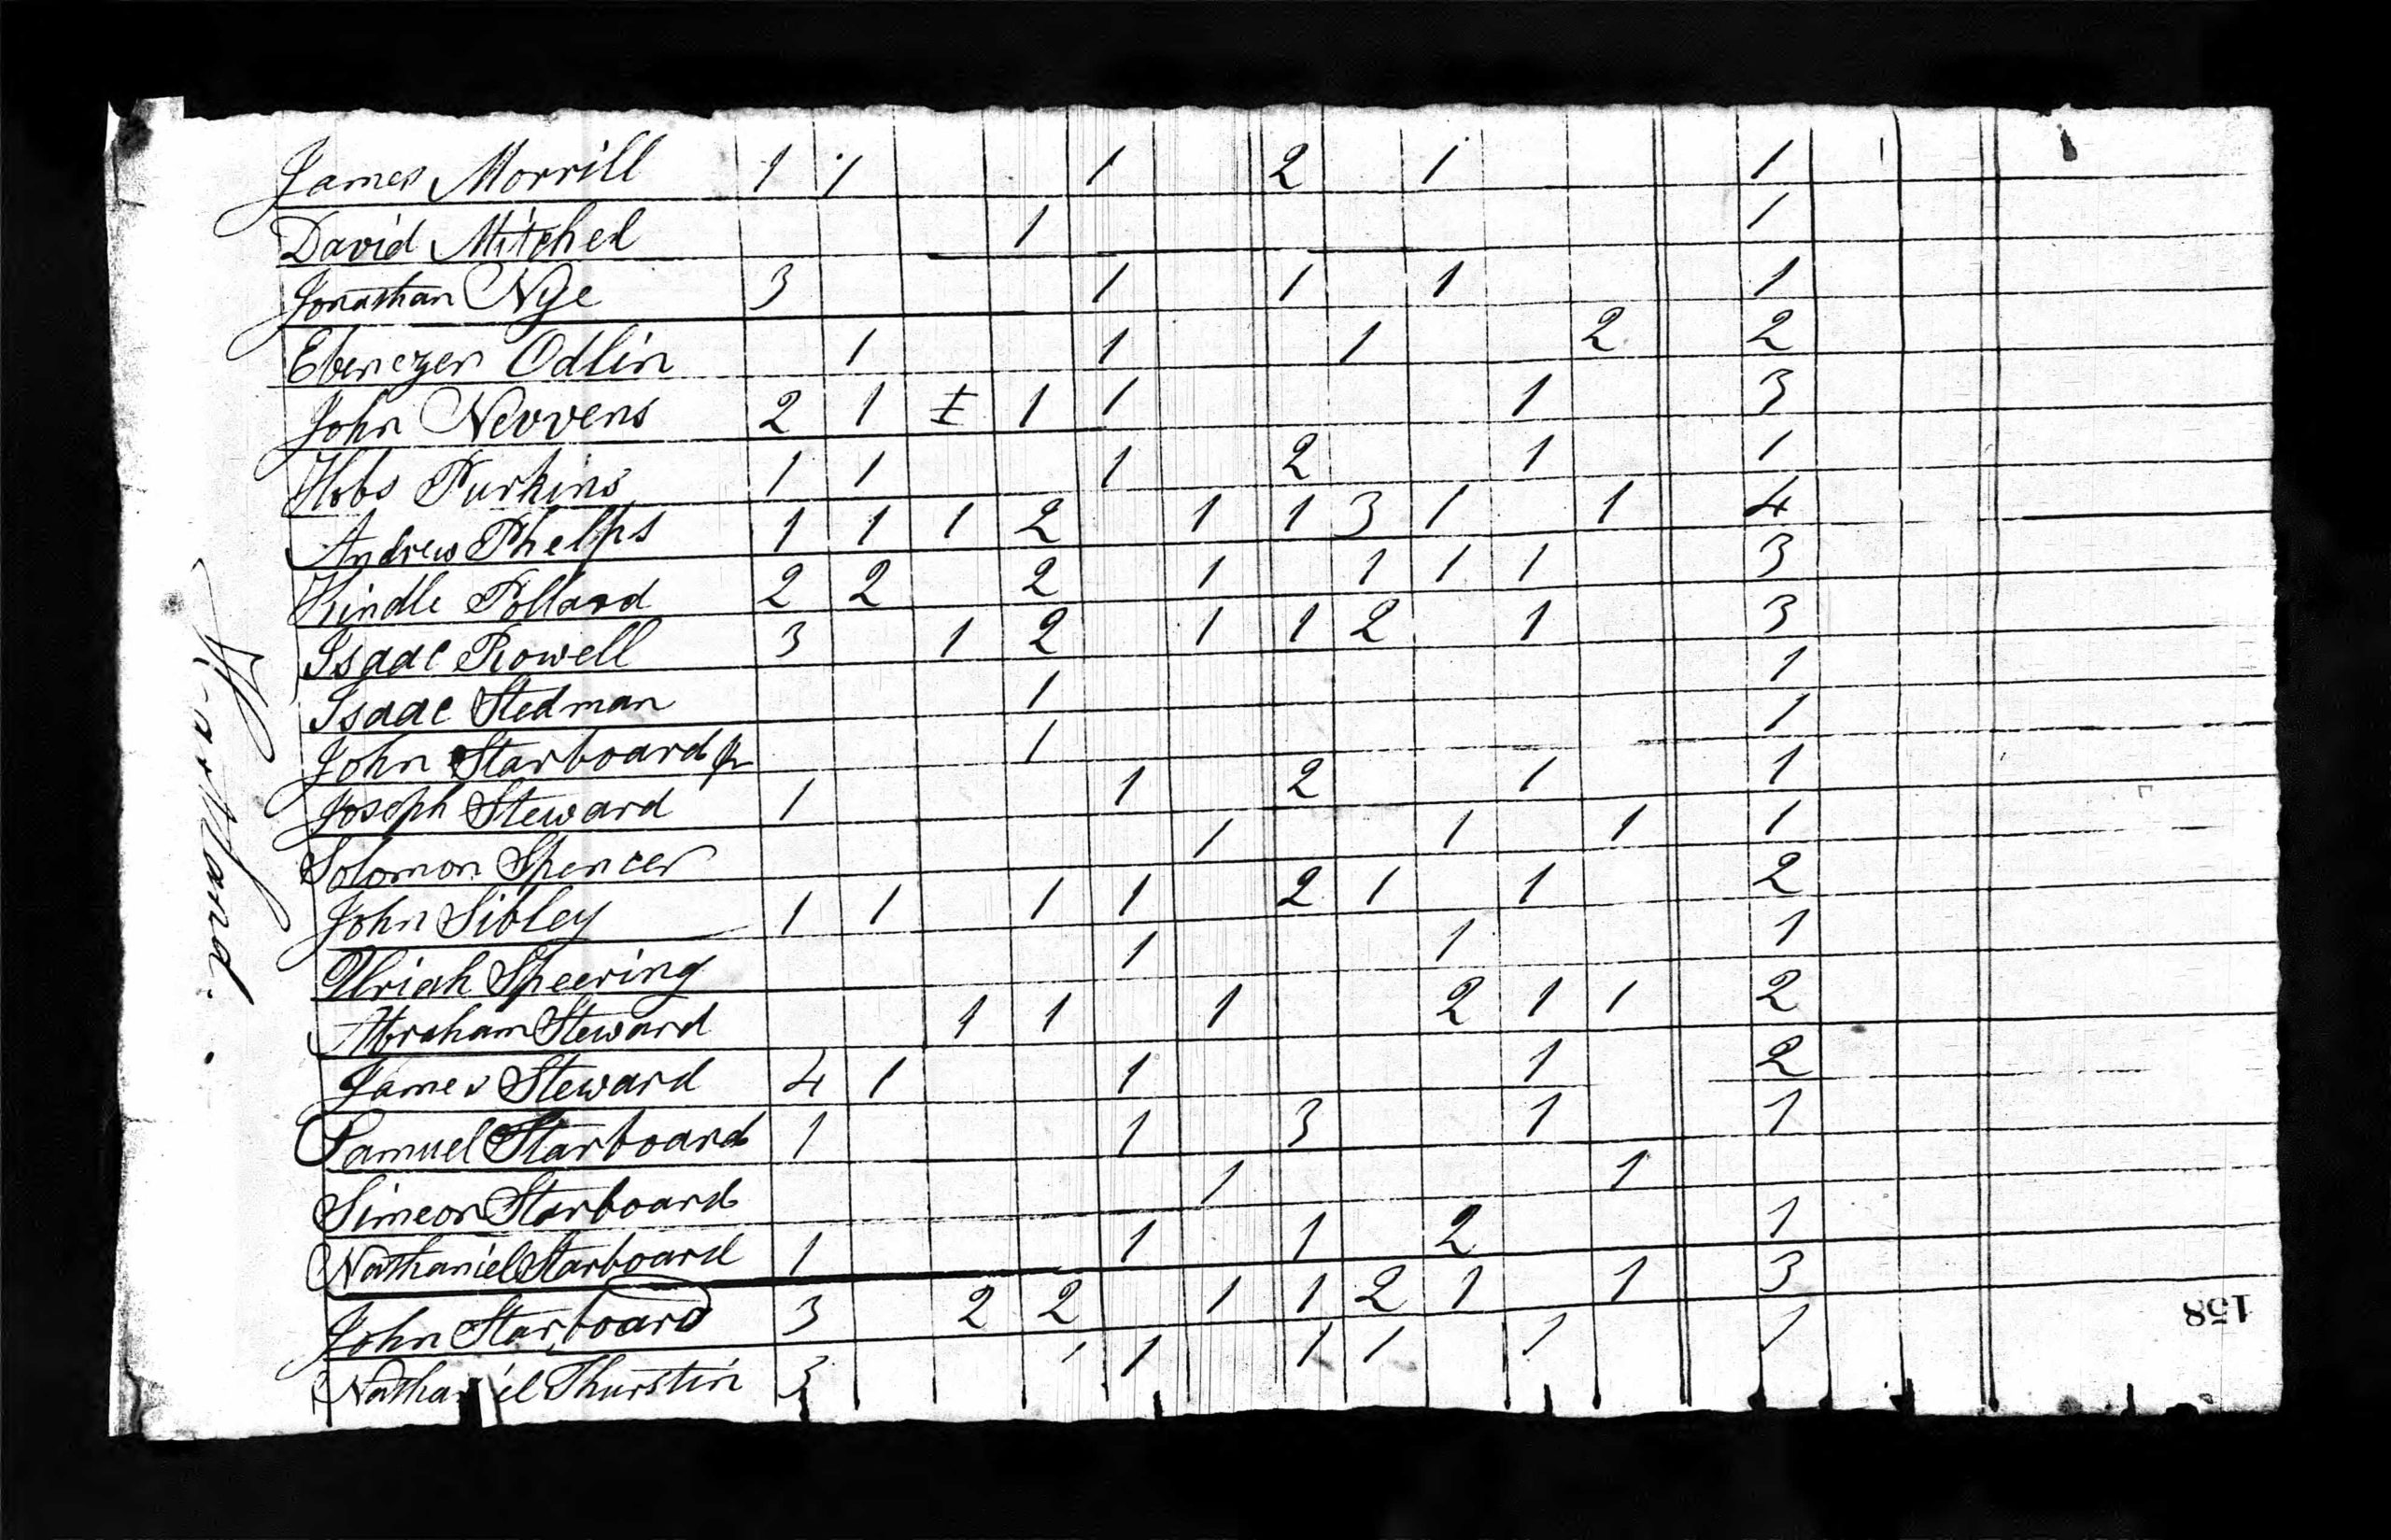 James Morrill 1 1 1 2 1 1
David Mitchel 1 1
Jonathan Nye 3 1 1 1 1
Ebenezer Odlin 1 1 1 2 2
John Nevvens 2 1 1 1 1 1 3
Hobs Purkins 1 1 1 2 1 1
Andrew Phelps 1 1 1 2 1 1 3 1 1 4
Kindle Pollard 2 2 2 1 1 1 1 3
Isaac Rowell 3 1 2 1 1 2 1 3
Isaac Stedman 1 1
John Starboard Jr 1 1
Joseph Steward 1 1 2 1 1
Solomon Spencer 1 1 1 1
John Sibley 1 1 1 1 2 1 1 2
Uriah Speering 1 1 1
Abraham Steward 1 1 1 2 1 1 2
James Steward 4 1 1 1 2
Samuel Starboard 1 1 3 1 1
Simeon Starboard 1 1
Nathaniel Starboard 1 1 1 2 1
John Starboard 3 2 2 1 1 2 1 1 3
Nathaniel Thurstin 3 1 1 1 1 1 1
158